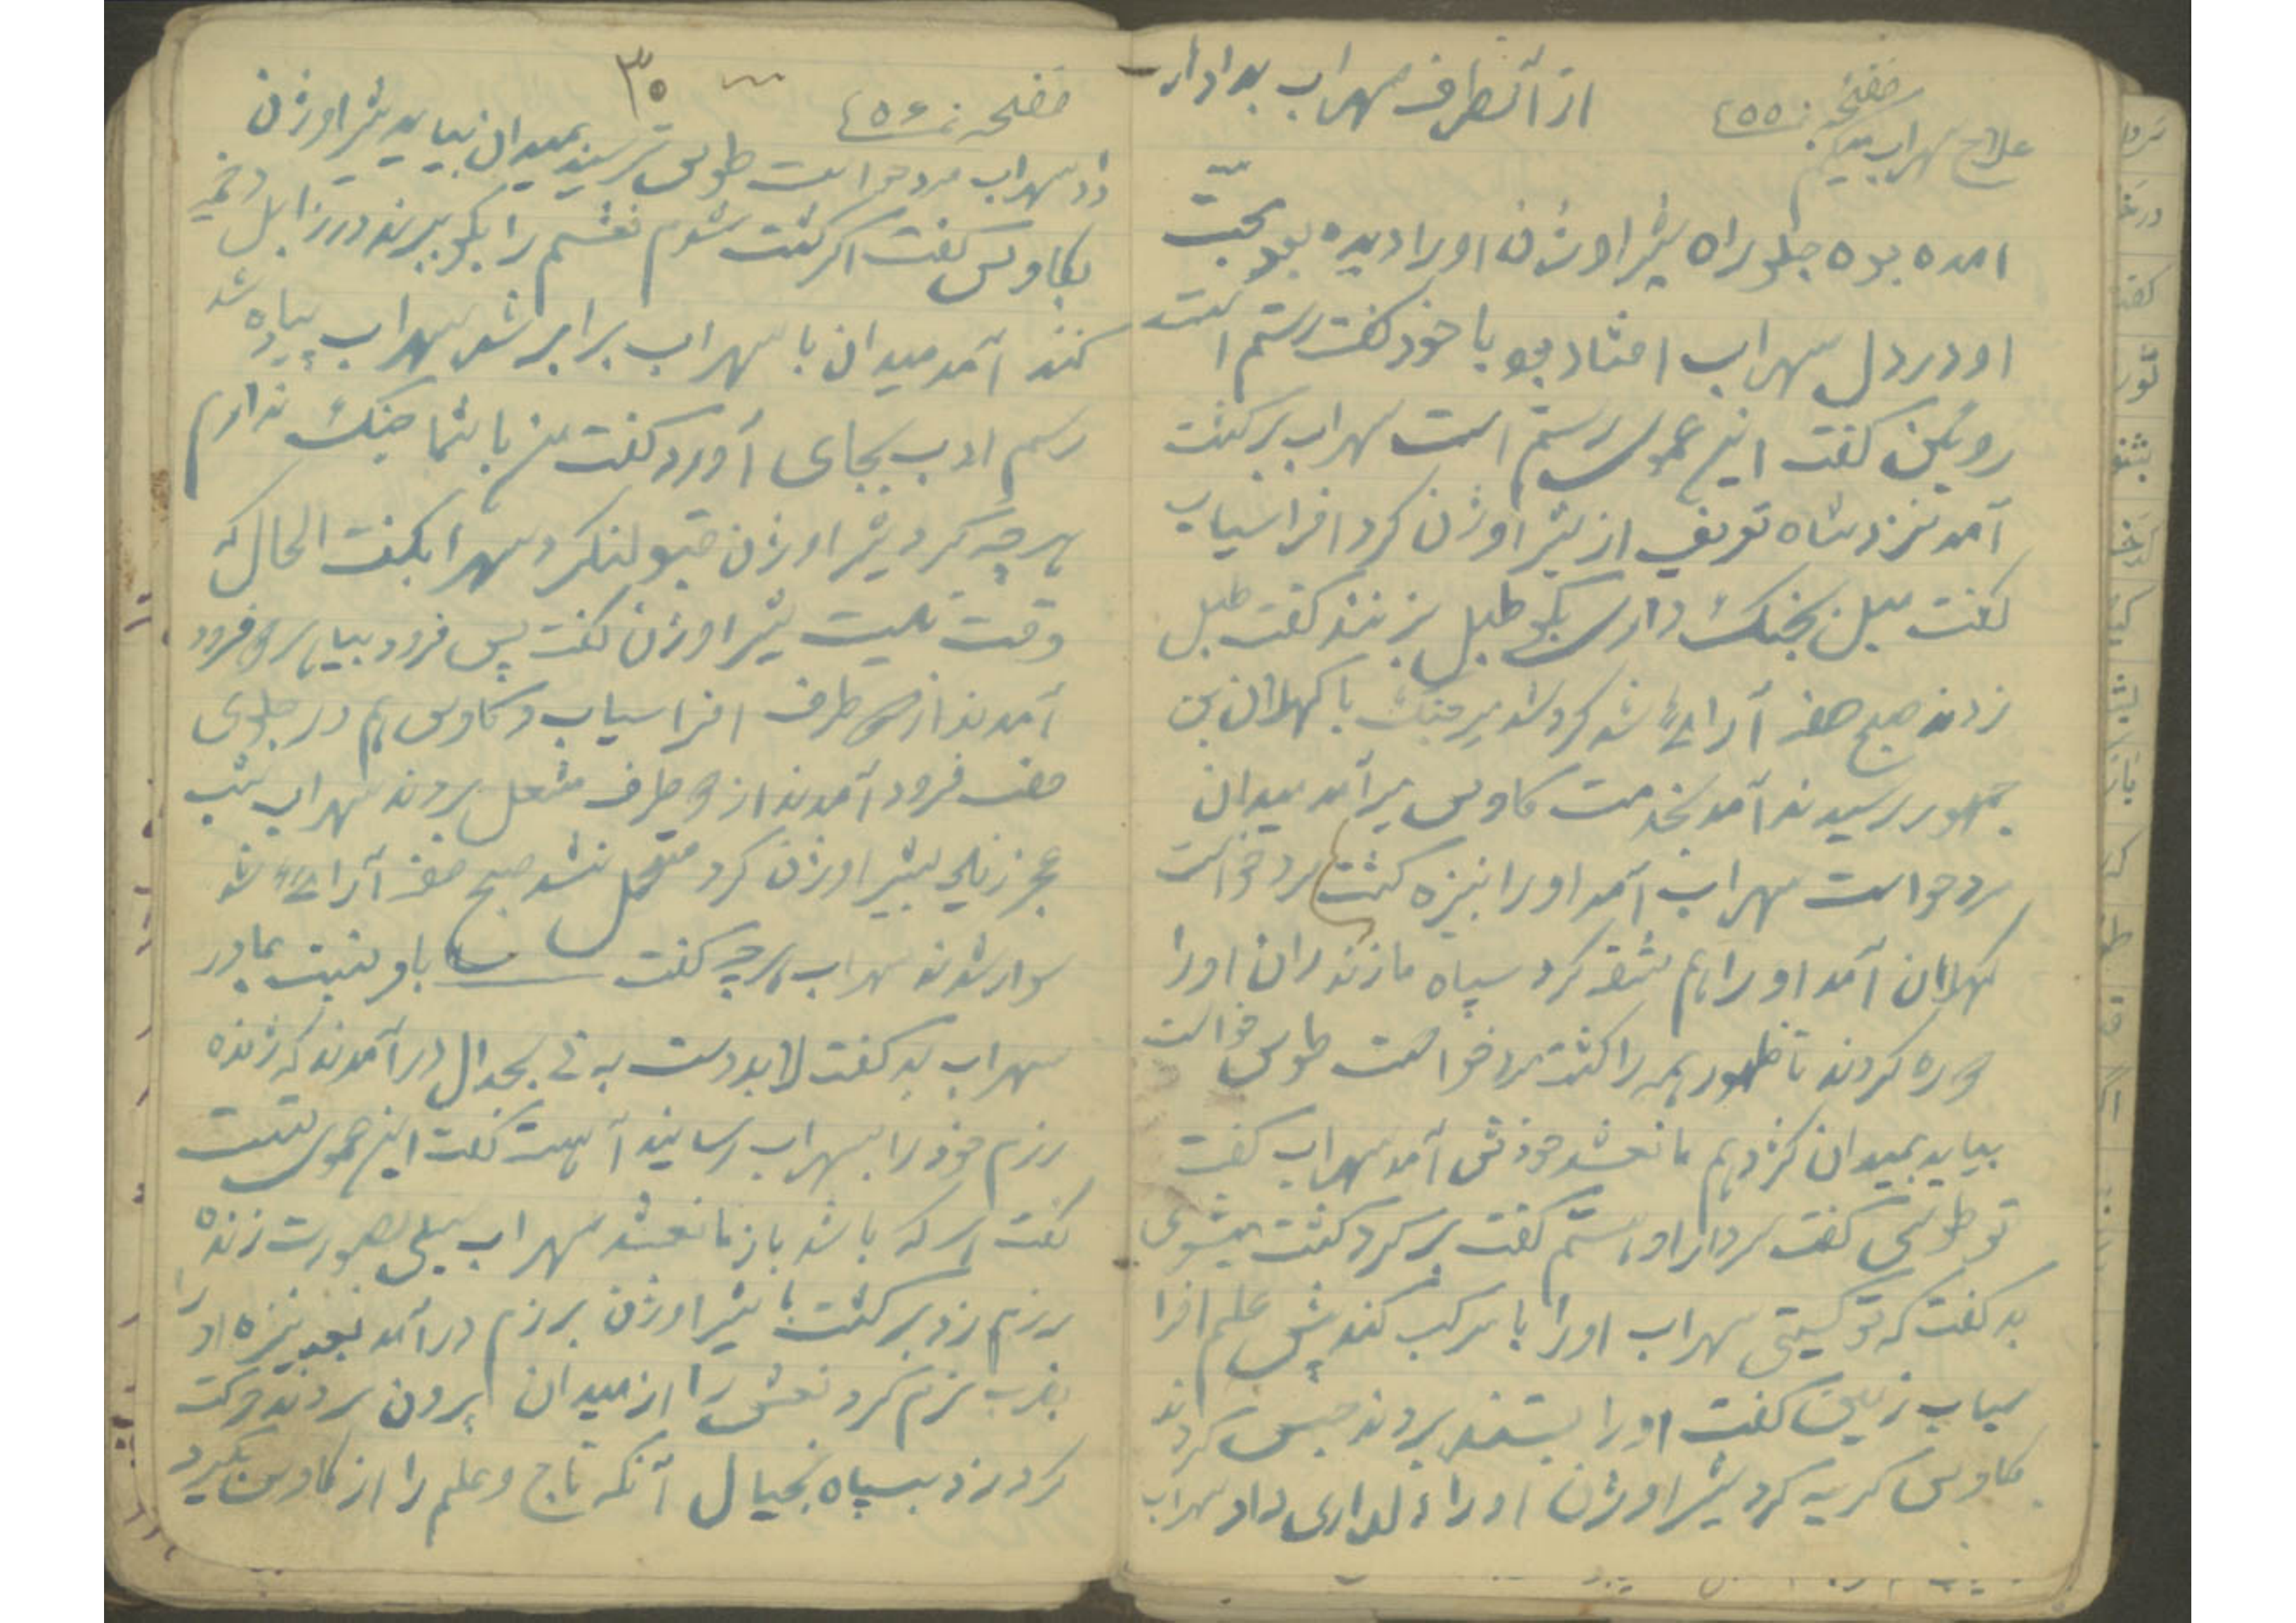 صفحه ٤٥٥
از آنطرف سهراب بدادار
علاج سهراب
امده بوده جلو راه شیراوژن اورا دیده بود محبت
او در دل سهراب افتاد بود با خود گفت رستم است
روبکن گفت این عموی رستم است سهراب برگشت
آمد نزد شاه تعریف از شیراوژن کرد افراسیاب
گفت میل بجنگ داری بگو طبل بزنند گفت طبل
زدند صبح صف آرائی شد گرد شد با کهلان بن
جمهور رسیدند آمد بخدمت کاوس میر آمد میدان
مرد خواست سهراب آمد اورا بنیزه کشت مرد خواست
کهلان آمد اورا هم شقه کرد سپاه مازندران اورا
دوره کردند تا ظهور همه را کشت مرد خواست طوس خواست
بیاید بمیدان گژدهم مانع شد خودش آمد سهراب گفت
تو طوسی گفت سردار او هستم گفت برگرد کشت میشوی
بد گفت که تو کیستی سهراب اورا با مرکب کند پیش علم افرا
سیاب زمین گفت اورا بستند بردند حبس کردند
کاوس گریه کرد شیراوژن اورا دلداری داد سهراب
صفحه ٤٥٦
٣٠
داد سهراب مرد خواست طوس ترسید بمیدان بیاید شیراوژن
بکاوس گفت اگر کشت شوم نعشم را بگو ببرند در زابل دخمه
کنند آمد میدان با سهراب برابر شد سهراب پیاده شد
رسم ادب بجای آورد گفت من با شما جنگ ندارم
هرچه کرد شیراوژن قبول نکرد سهراب گفت الحال که
وقت نیست شیراوژن گفت پس فرود بیا هر دو فرود
آمدند از دو طرف افراسیاب و کاوس هم در جلوی
صف فرود آمدند از دو طرف مشعل بردند سهراب شب
عجز زیادی بشیراوژن کرد متحمل نشد صبح صف آرائی شد
سوار شدند سهراب هرچه گفت باو نسبت بمادر
سهراب بد گفت لابد دست به نی بجدال در آمدند که ژنده
رزم خود را بسهراب رسانید آهسته گفت این عموی تست
گفت هر که باشد باز مانع شد سهراب سیلی بصورت زنده
رزم زد برگشت با شیراوژن برزم در آمد بضرب نیزه او را
بضرب نرم کرد نعش را از میدان بیرون بردند حرکت
کرد زد بسپاه بخیال آنکه تاج و علم را از کاوس بگیرد